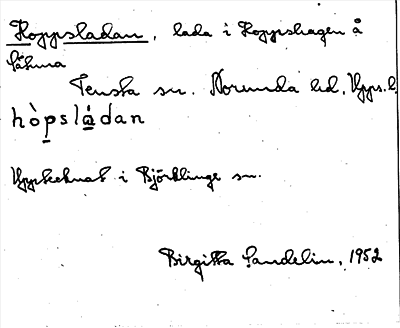 Hoppsladan, lada i Hoppshagen å
Såhma
Tensta sn. Norunda hd, Upps. l.
hòpsládan
Upptecknat i Björklinge sn.
Birgitta Sandelin, 1952